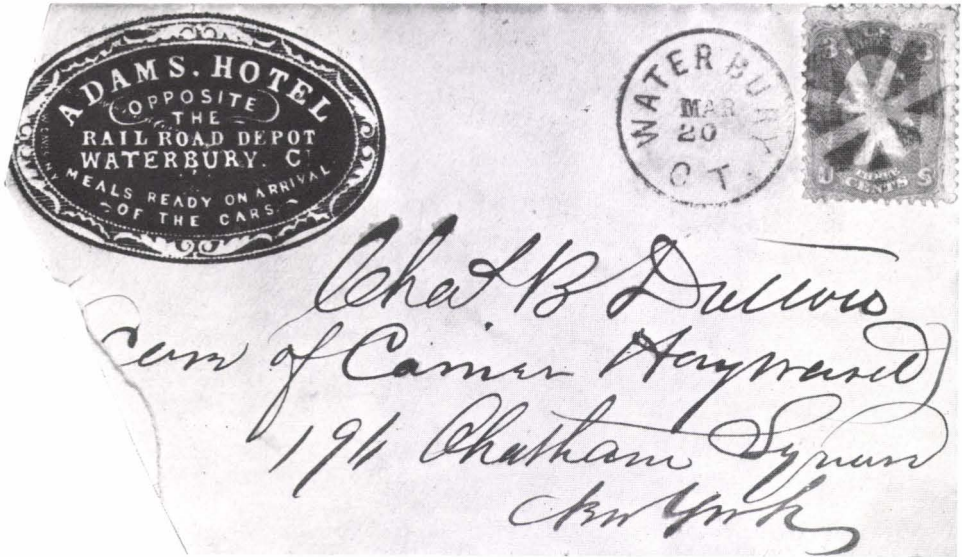 ADAMS. HOTEL
OPPOSITE
THE
RAIL ROAD DEPOT
WATERBURY. CT
MEALS READY ON ARRIVAL
OF THE CARS
WATERBURY
MAR
20
CT.
3 3
U S
THREE
CENTS
Chas B Dutton
Care of Hayward
Chatham Square
New York